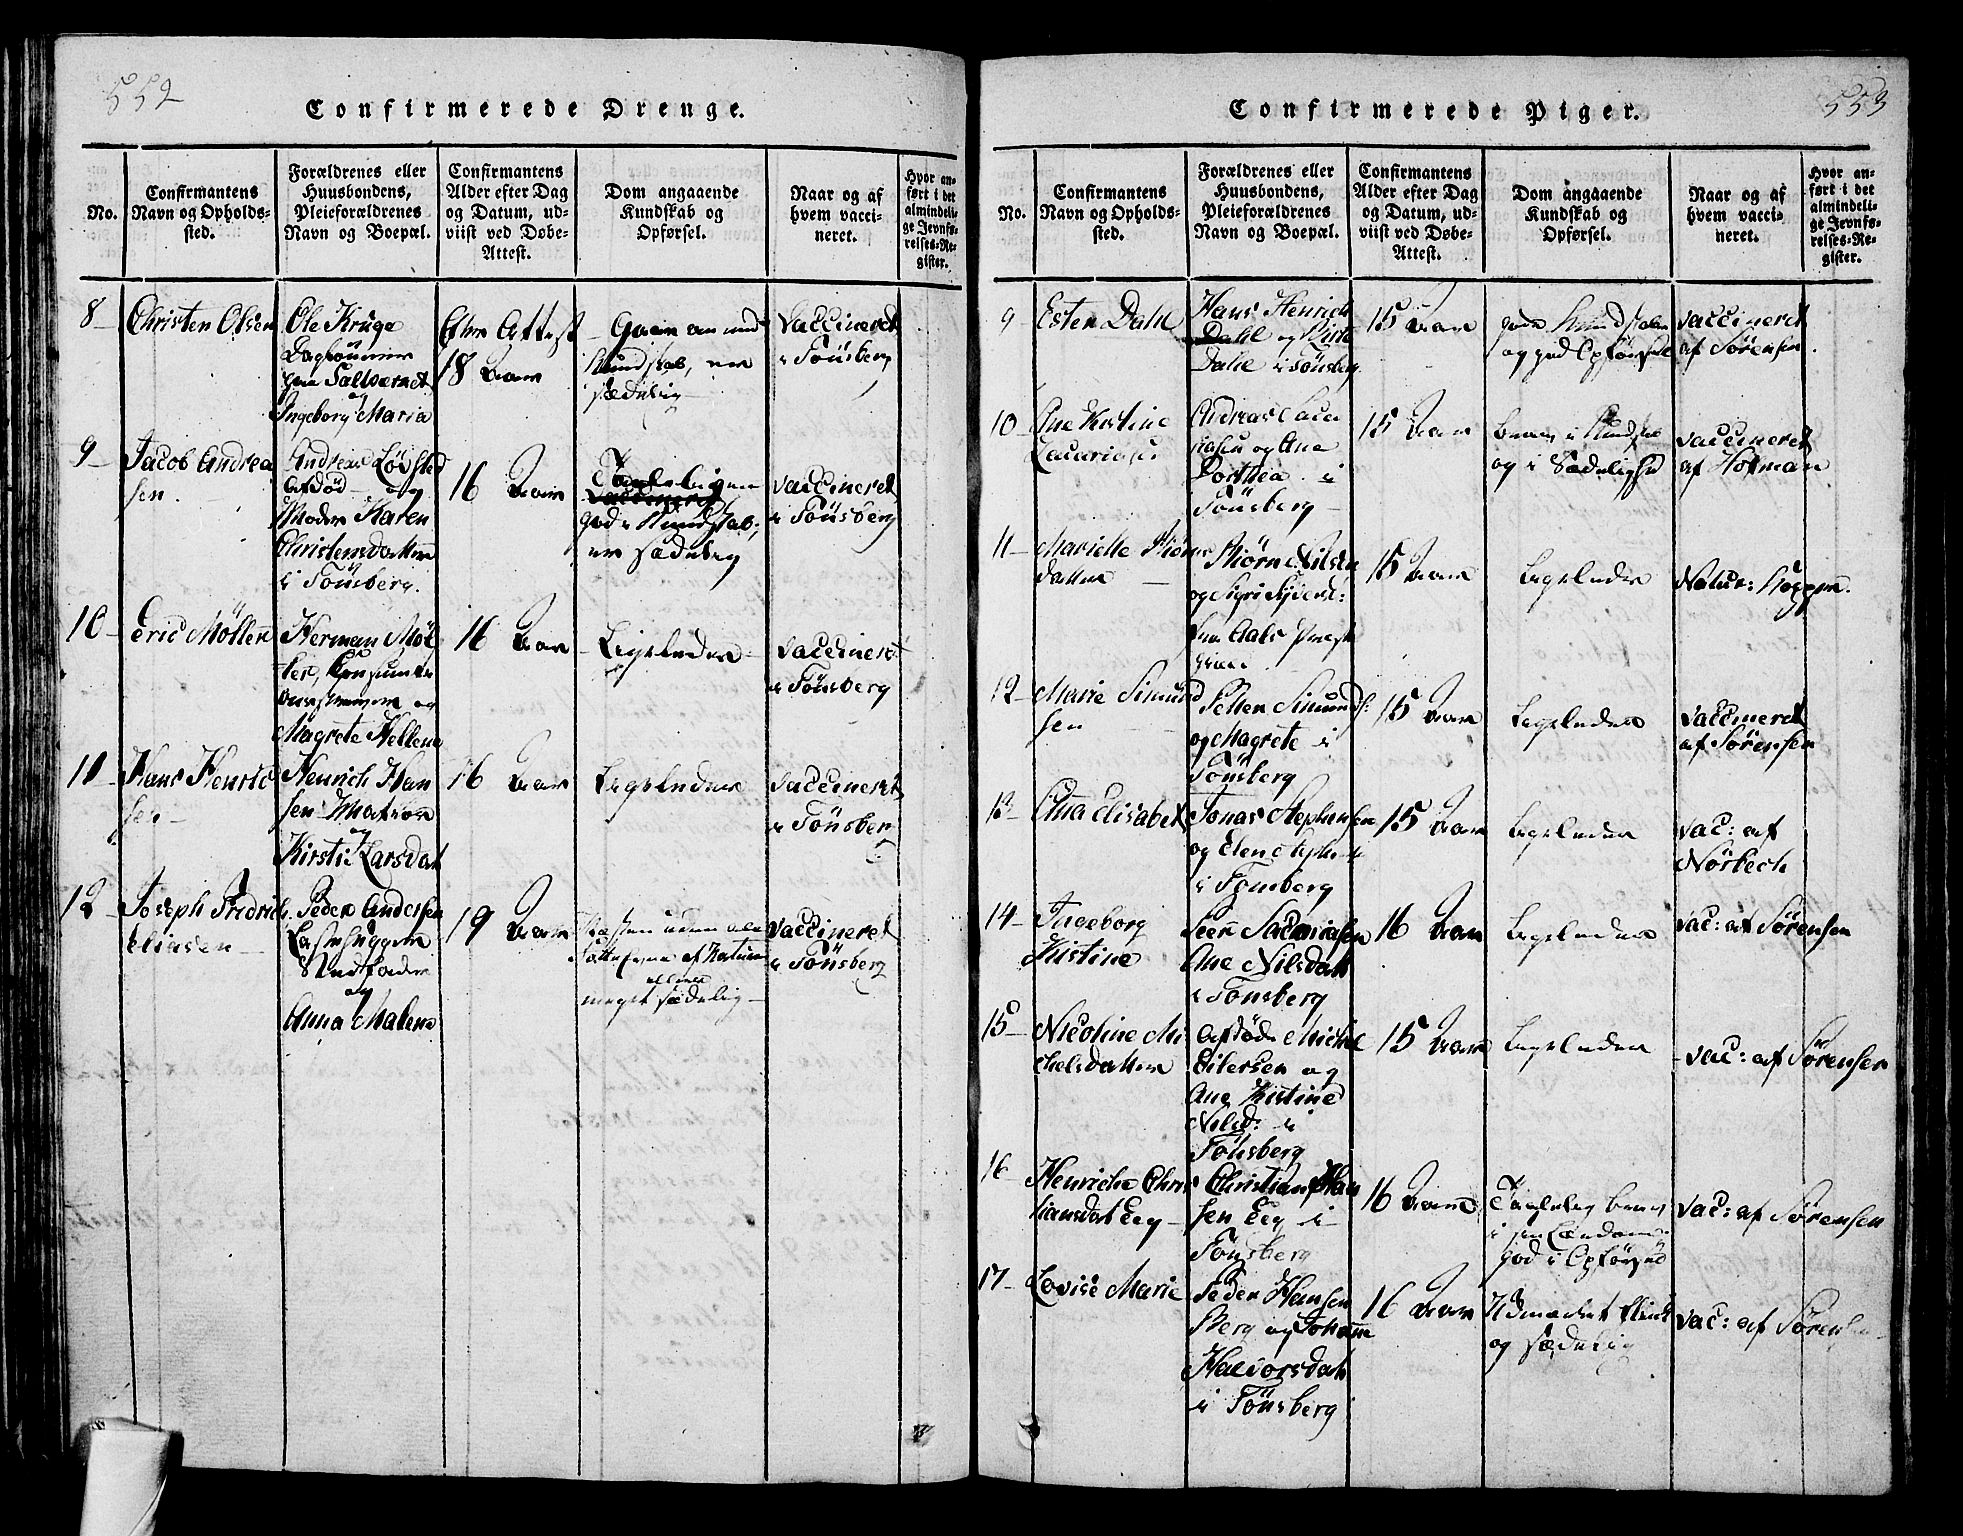 552
Confirmerede Drenge.
No.
Confirmantens
Navn og Opholds-
sted.
Forældrenes eller
Huusbondens,
Pleieforældrenes
Navn og Boepæl.
Confirmantens
Alder efter Dag
og Datum, ud-
viist ved Døbe-
Attest.
Dom angaaende
Kundskab og
Opførsel.
Naar og af
hvem vacci-
neret.
Hvor an-
ført i det
almindeli-
ge Jevnfø-
relses-Re-
gister.
8
Christen Olsen
Ole Kruge
paa Saltværnet
og
Ingeborg Maria
Efter Attest
18 Aar
Kundskab, er
sædelig
Vaccineret
i Tönsberg
9
Jacob Andrea
sen.
Andreas Løvsted
afdød og
Moder Karen
Christensdatter
i Tönsberg.
16 Aar
Taalelig
god i Kundskab,
er sædelig
Vaccineret
i Tönsberg
10
Eric Möller
Herman Möl
ler, Consum
og
Magrete Hellene
16 Aar
Ligeledes
Vaccineret
i Tönsberg
11
Hans Henric
sen
Henrich Han
sen Matros
og
Kirstie Larsdat
16 Aar
Ligeledes
Vaccineret
i Tönsberg
12
Joseph Fridrich
Eliasen
Peder Andersen
Stedfader
og
Anna Malene
19 Aar
Næsten uden al
af Naturen
ellers
meget sædelig
Vaccineret
i Tönsberg
553
Confirmerede Piger.
No.
Confirmantens
Navn og Opholds-
sted.
Forældrenes eller
Huusbondens,
Pleieforældrenes
Navn og Boepæl.
Confirmantens
Alder efter Dag
og Datum, ud-
viist ved Døbe-
Attest.
Dom angaaende
Kundskab og
Opførsel.
Naar og af
hvem vacci-
neret.
Hvor an-
ført i det
almindeli-
ge Jevnfø-
relses-Re-
gister.
9
Ester Dahl
Hans Henrich
Dahl og Birte
Dahl i Tönsberg
15 Aar
gode Kundskaber
og god Opførsel
Vaccineret
af Sörensen
10
Ane Kristine
Zacariasen
Andreas Zaca
riasen og Ane
Dorthea i
Tönsberg
15 Aar
og i Sædelighed
Vaccineret
af Hofman
11
Marielle Biörns
datter
Biörn Nilsen
og Sigri Syverts:
15 Aar
Ligeledes
Natur: Kopper.
12
Marie Simund
sen
Petter Simunds:
og Magrete i
Tönsberg
15 Aar
Ligeledes
Vaccineret
af Sörensen
13
Ana Elisabet
Jonas Stephensen
og Elen Steph
i Tönsberg
15 Aar
Ligeledes
Vac: af
Nörbech
14
Ingeborg
Kistine
Peer Sacariasen
Ane Nilsdat
i Tönsberg
16 Aar
Ligeledes
Vac: af Sörensen
15
Nicoline Mi
chelsdatter
afdöde Michel
Eilersen og
Ane Kistine
Nilsd: i
Tönsberg
15 Aar
Ligeledes
Vac: af Sörensen
16
Henriche Chris
tiansdat Eeg
Christian Han
sen Eeg i
Tönsberg
16 Aar
Taalelig
i sin
god i Opförsel
Vac: af Sörensen
17
Lovise Marie
Peder Hansen
Berg og Johanne
Halvorsdat
i Tönsberg
16 Aar
Udmærket flink
og sædelig
Vac: af Sörensen